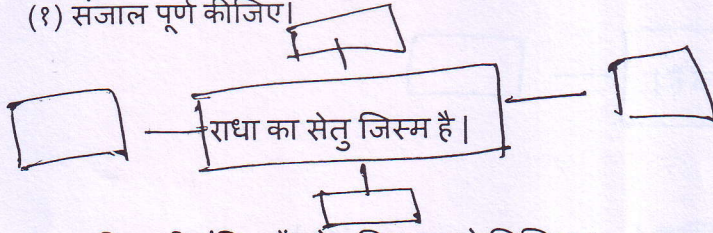 (१) संजाल पूर्ण कीजिए।
राधा का सेतु जिस्म है|